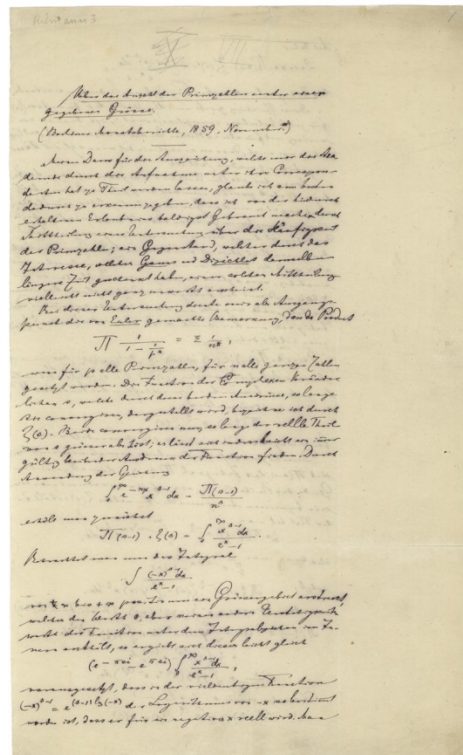 Ueber die Anzahl der Primzahlen unter einer
gegebenen Grösse.
(Berliner Monatsberichte, 1859, November.)
Meinen Dank für die Auszeichnung, welche mir die Aka-
demie durch die Aufnahme unter ihre Correspon-
denten hat zu Theil werden lassen, glaube ich am besten
dadurch zu erkennen zu geben, dass ich von der hiedurch
erhaltenen Erlaubniss baldigst Gebrauch mache durch
Mittheilung einer Untersuchung über die Häufigkeit
der Primzahlen; ein Gegenstand, welcher durch das
Interesse, welches Gauss und Dirichlet demselben
längere Zeit geschenkt haben, einer solchen Mittheilung
vielleicht nicht ganz unwerth erscheint.
Bei dieser Untersuchung diente mir als Ausgangs-
punkt die von Euler gemachte Bemerkung, dass das Product
∏ 1/(1 − 1/p^s) = Σ 1/n^s,
wenn für p alle Primzahlen, für n alle ganzen Zahlen
gesetzt werden. Die Function der complexen Veränder-
lichen s, welche durch diese beiden Ausdrücke, so lange
sie convergiren, dargestellt wird, bezeichne ich durch
ζ(s). Beide convergiren nur, so lange der reelle Theil
von s grösser als 1 ist; es lässt sich indess leicht ein immer
gültig bleibender Ausdruck der Function finden. Durch
Anwendung der Gleichung
∫₀^∞ e^(−nx) x^(s−1) dx = Π(s−1)/n^s
erhält man zunächst
Π(s−1) · ζ(s) = ∫₀^∞ x^(s−1) dx/(e^x − 1).
Betrachtet man nun das Integral
∫ (−x)^(s−1) dx/(e^x − 1)
von +∞ bis +∞ positiv um ein Grössengebiet erstreckt,
welches den Werth 0, aber keinen andern Unstetigkeits-
werth der Function unter dem Integralzeichen im In-
nern enthält, so ergiebt sich dieses leicht gleich
(e^(−πsi) − e^(πsi)) ∫₀^∞ x^(s−1) dx/(e^x − 1),
vorausgesetzt, dass in der vieldeutigen Function
(−x)^(s−1) = e^((s−1) lg(−x)) der Logarithmus von −x so bestimmt
worden ist, dass er für ein negatives x reell wird.